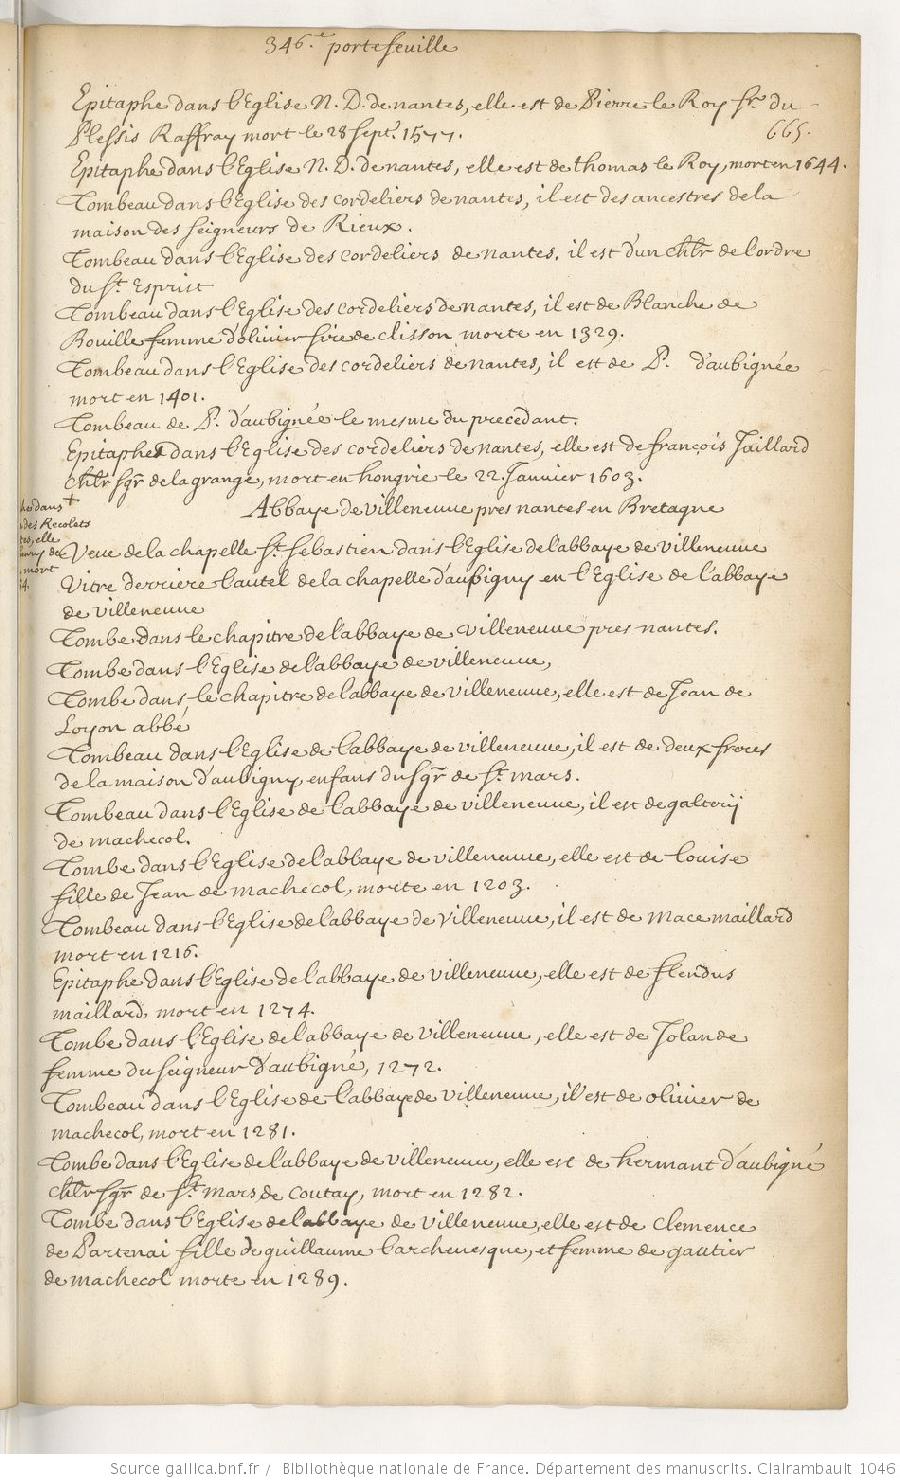 346.e portefeuille
Epitaphe dans l'Eglise N. D. de nantes, elle est de Pierre le Roy sr. du
665.
Plessis Raffray mort le 28 sept. 1577.
Epitaphe dans l'Eglise N. D. de nantes, elle est de thomas le Roy, mort en 1644.
Tombeau dans l'Eglise des cordeliers de nantes, il est des ancestres de la
maison des seigneurs de Rieux.
Tombeau dans l'Eglise des cordeliers de nantes, il est d'un chlr de l'ordre
du St. Esprit
Tombeau dans l'Eglise des cordeliers de nantes, il est de Blanche de
Bouille femme d'olivier sire de clisson morte en 1329.
Tombeau dans l'Eglise des cordeliers de nantes, il est de P. d'aubignée
mort en 1401.
Tombeau de P. d'aubignée le mesme du precedant.
Epitaphe dans l'Eglise des cordeliers de nantes, elle est de françois Jaillard
chlr sgr de la grange, mort en hongrie le 22. Janvier 1603.
+
he dans
des Recolets
tes, elle
de
mort
4.
Abbaye de villeneuve pres nantes en Bretagne
Veue de la chapelle St. sebastien dans l'Eglise de l'abbaye de villeneuve
Vitre derriere l'autel de la chapelle d'aubigny en l'Eglise de l'abbaye
de villeneuve
Tombe dans le chapitre de l'abbaye de villeneuve pres nantes.
Tombe dans l'Eglise de l'abbaye de villeneuve,
Tombe dans le chapitre de l'abbaye de villeneuve, elle est de Jean de
Loyon abbé
Tombeau dans l'Eglise de l'abbaye de villeneuve, il est de deux freres
de la maison d'aubigny, enfans du sgr de St. mars.
Tombeau dans l'Eglise de l'abbaye de villeneuve, il est de galterij
de machecol.
Tombe dans l'Eglise de l'abbaye de villeneuve, elle est de Louise
fille de Jean de machecol, morte en 1203.
Tombeau dans l'Eglise de l'abbaye de villeneuve, il est de mace maillard
mort en 1216.
Epitaphe dans l'Eglise de l'abbaye de villeneuve, elle est de flendus
maillard, mort en 1274.
Tombe dans l'Eglise de l'abbaye de villeneuve, elle est de Jolande
femme du seigneur d'aubigné, 1272.
Tombeau dans l'Eglise de l'abbaye de villeneuve, il est de olivier de
machecol, mort en 1281.
Tombe dans l'Eglise de l'abbaye de villeneuve, elle est de hermant d'aubigné
chlr sgr de St mars de coutay, mort en 1282.
Tombe dans l'Eglise de l'abbaye de villeneuve, elle est de clemence
de Partenai fille de guillaume l'archevesque, et femme de gautier
de machecol morte en 1289.
Source gallica.bnf.fr / Bibliothèque nationale de France. Département des manuscrits. Clairambault 1046